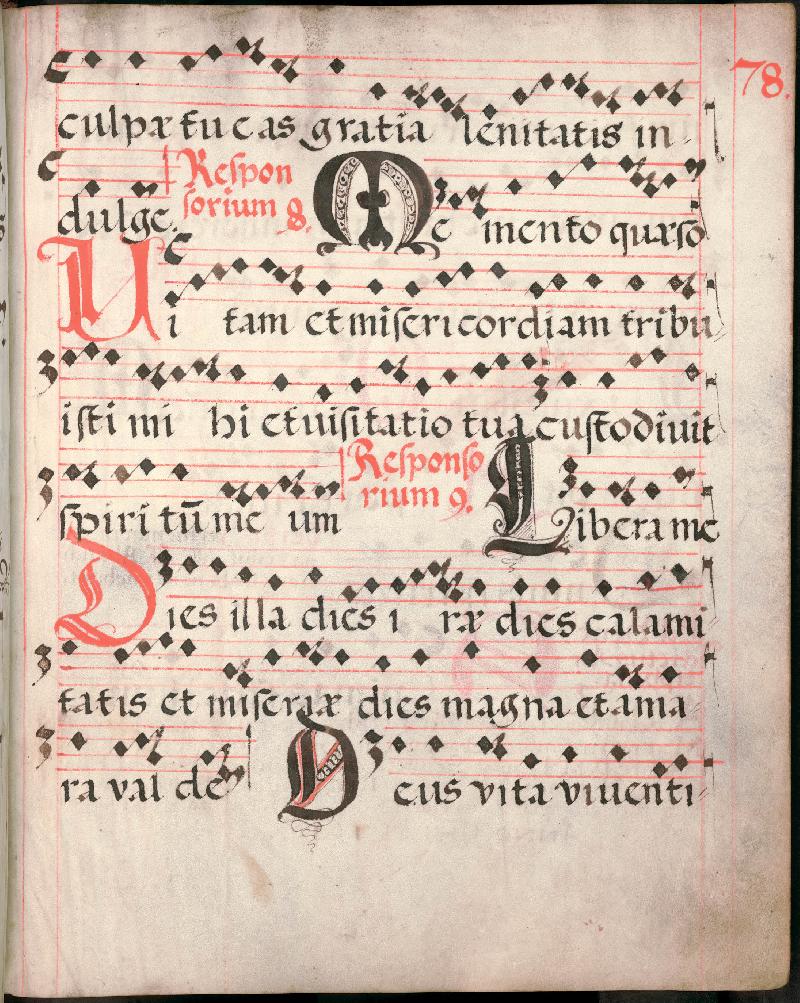 78.
culpæ tu eas gratia lenitatis in-
dulge. Respon
sorium 8. Memento quæso
Vi tam et misericordiam tribu
isti mi hi et uisitatio tua custodiuit
spiri tū me um Responso
rium 9. Libera me
Dies illa dies i ræ dies calami
tatis et miseriæ dies magna et ama-
ra val de Deus vita viuenti-